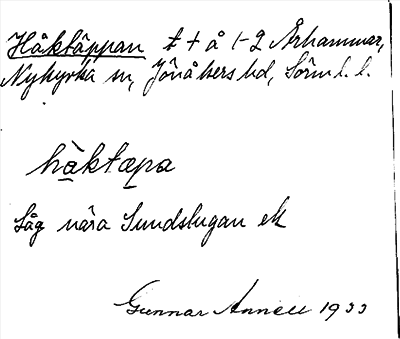 Håktäppan t + å 1-2 Århammar,
Nykyrka sn, Jönåkers hd, Sörml. l.
håktæpa
Låg nära Sundstugan
Gunnar Annell 1933